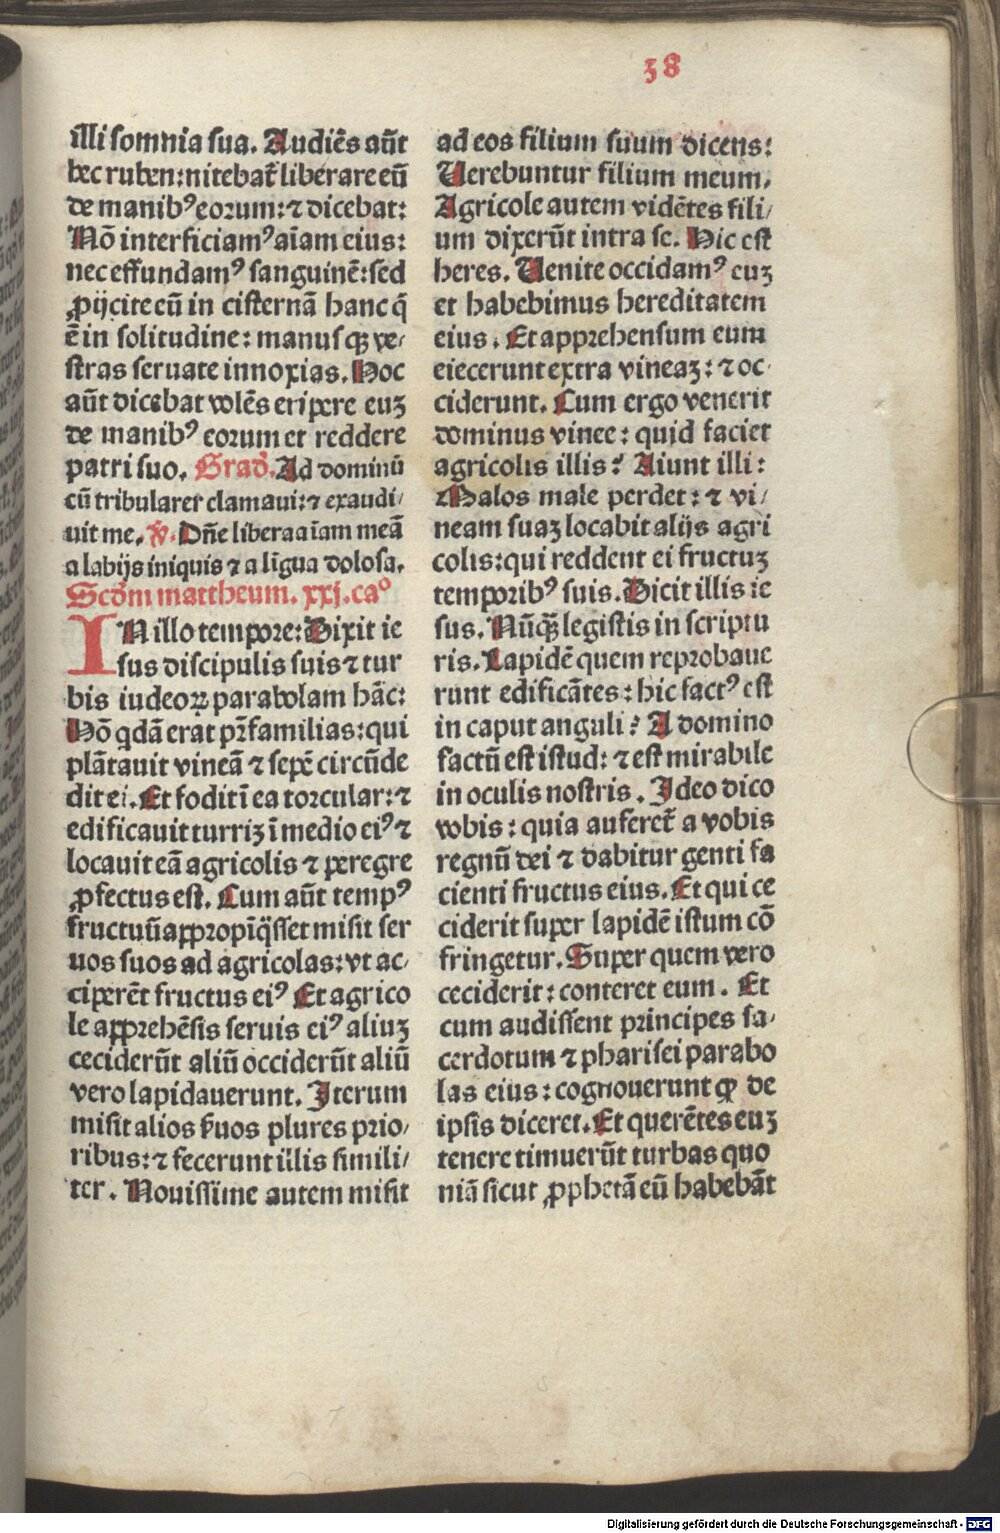 38
illi somnia sua. Audiēs aūt
hec ruben: nitebat᷑ liberare eū
de manibꝰ eorum: ⁊ dicebat:
Nō interficiamꝰ aīam eius:
nec effundamꝰ sanguinē: sed
ꝓijcite eū in cisternā hanc q̄
ē in solitudine: manusqꝫ ve⸗
stras seruate innoxias. Hoc
aūt dicebat volēs eripere euꝫ
de manibꝰ eorum et reddere
patri suo. Grad̄. Ad dominū
cū tribularer clamaui: ⁊ exaudi⸗
uit me. v̄. Dn̄e libera aīam meā
a labijs iniquis ⁊ a līgua dolosa.
Scd̄m mattheum. xxj. caº
IN illo tempore: Dixit ie
sus discipulis suis ⁊ tur
bis iudeoꝝ parabolam hāc:
Hō qdā erat pr̄familias: qui
plātauit vineā ⁊ sepē circūde
dit ei. Et fodit ī ea torcular: ⁊
edificauit turriꝫ ī medio eiꝰ ⁊
locauit eā agricolis ⁊ peregre
ꝓfectus est. Cum aūt tempꝰ
fructuū appropīq̄sset misit ser
uos suos ad agricolas: vt ac⸗
ciperēt fructus eiꝰ Et agrico
le apprehēsis seruis eiꝰ aliuꝫ
ceciderūt aliū occiderūt aliū
vero lapidauerunt. Iterum
misit alios s̄uos plures prio⸗
ribus: ⁊ fecerunt illis simili⸗
ter. Nouissime autem misit
ad eos filium suum dicens:
Verebuntur filium meum.
Agricole autem vidētes fili⸗
um dixerūt intra se. Hic est
heres. Venite occidamꝰ euꝫ
et habebimus hereditatem
eius. Et apprehensum eum
eiecerunt extra vineaꝫ: ⁊ oc⸗
ciderunt. Cum ergo venerit
dominus vinee: quid faciet
agricolis illis? Aiunt illi:
Malos male perdet: ⁊ vi⸗
neam suaꝫ locabit alijs agri
colis: qui reddent ei fructuꝫ
temporibꝰ suis. Dicit illis ie
sus. Nūqꝫ legistis in scriptu
ris. Lapidē quem reprobaue
runt edificātes: hic factꝰ est
in caput anguli? A domino
factū est istud: ⁊ est mirabile
in oculis nostris. Ideo dico
vobis: quia auferet᷑ a vobis
regnū dei ⁊ dabitur genti fa
cienti fructus eius. Et qui ce
ciderit super lapidē istum cō
fringetur. Super quem vero
ceciderit: conteret eum. Et
cum audissent principes sa⸗
cerdotum ⁊ pharisei parabo
las eius: cognouerunt ꝙ de
ipsis diceret. Et querētes euꝫ
tenere timuerūt turbas quo
niā sicut ꝓphetā eū habebāt
Digitalisierung gefördert durch die Deutsche Forschungsgemeinschaft - DFG